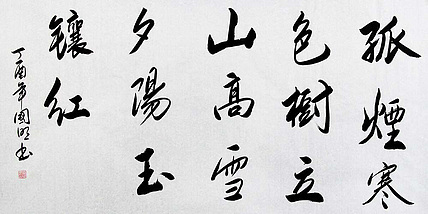 孤煙寒
色樹立
山高雪
夕陽玉
鑲紅
丁酉年國明书